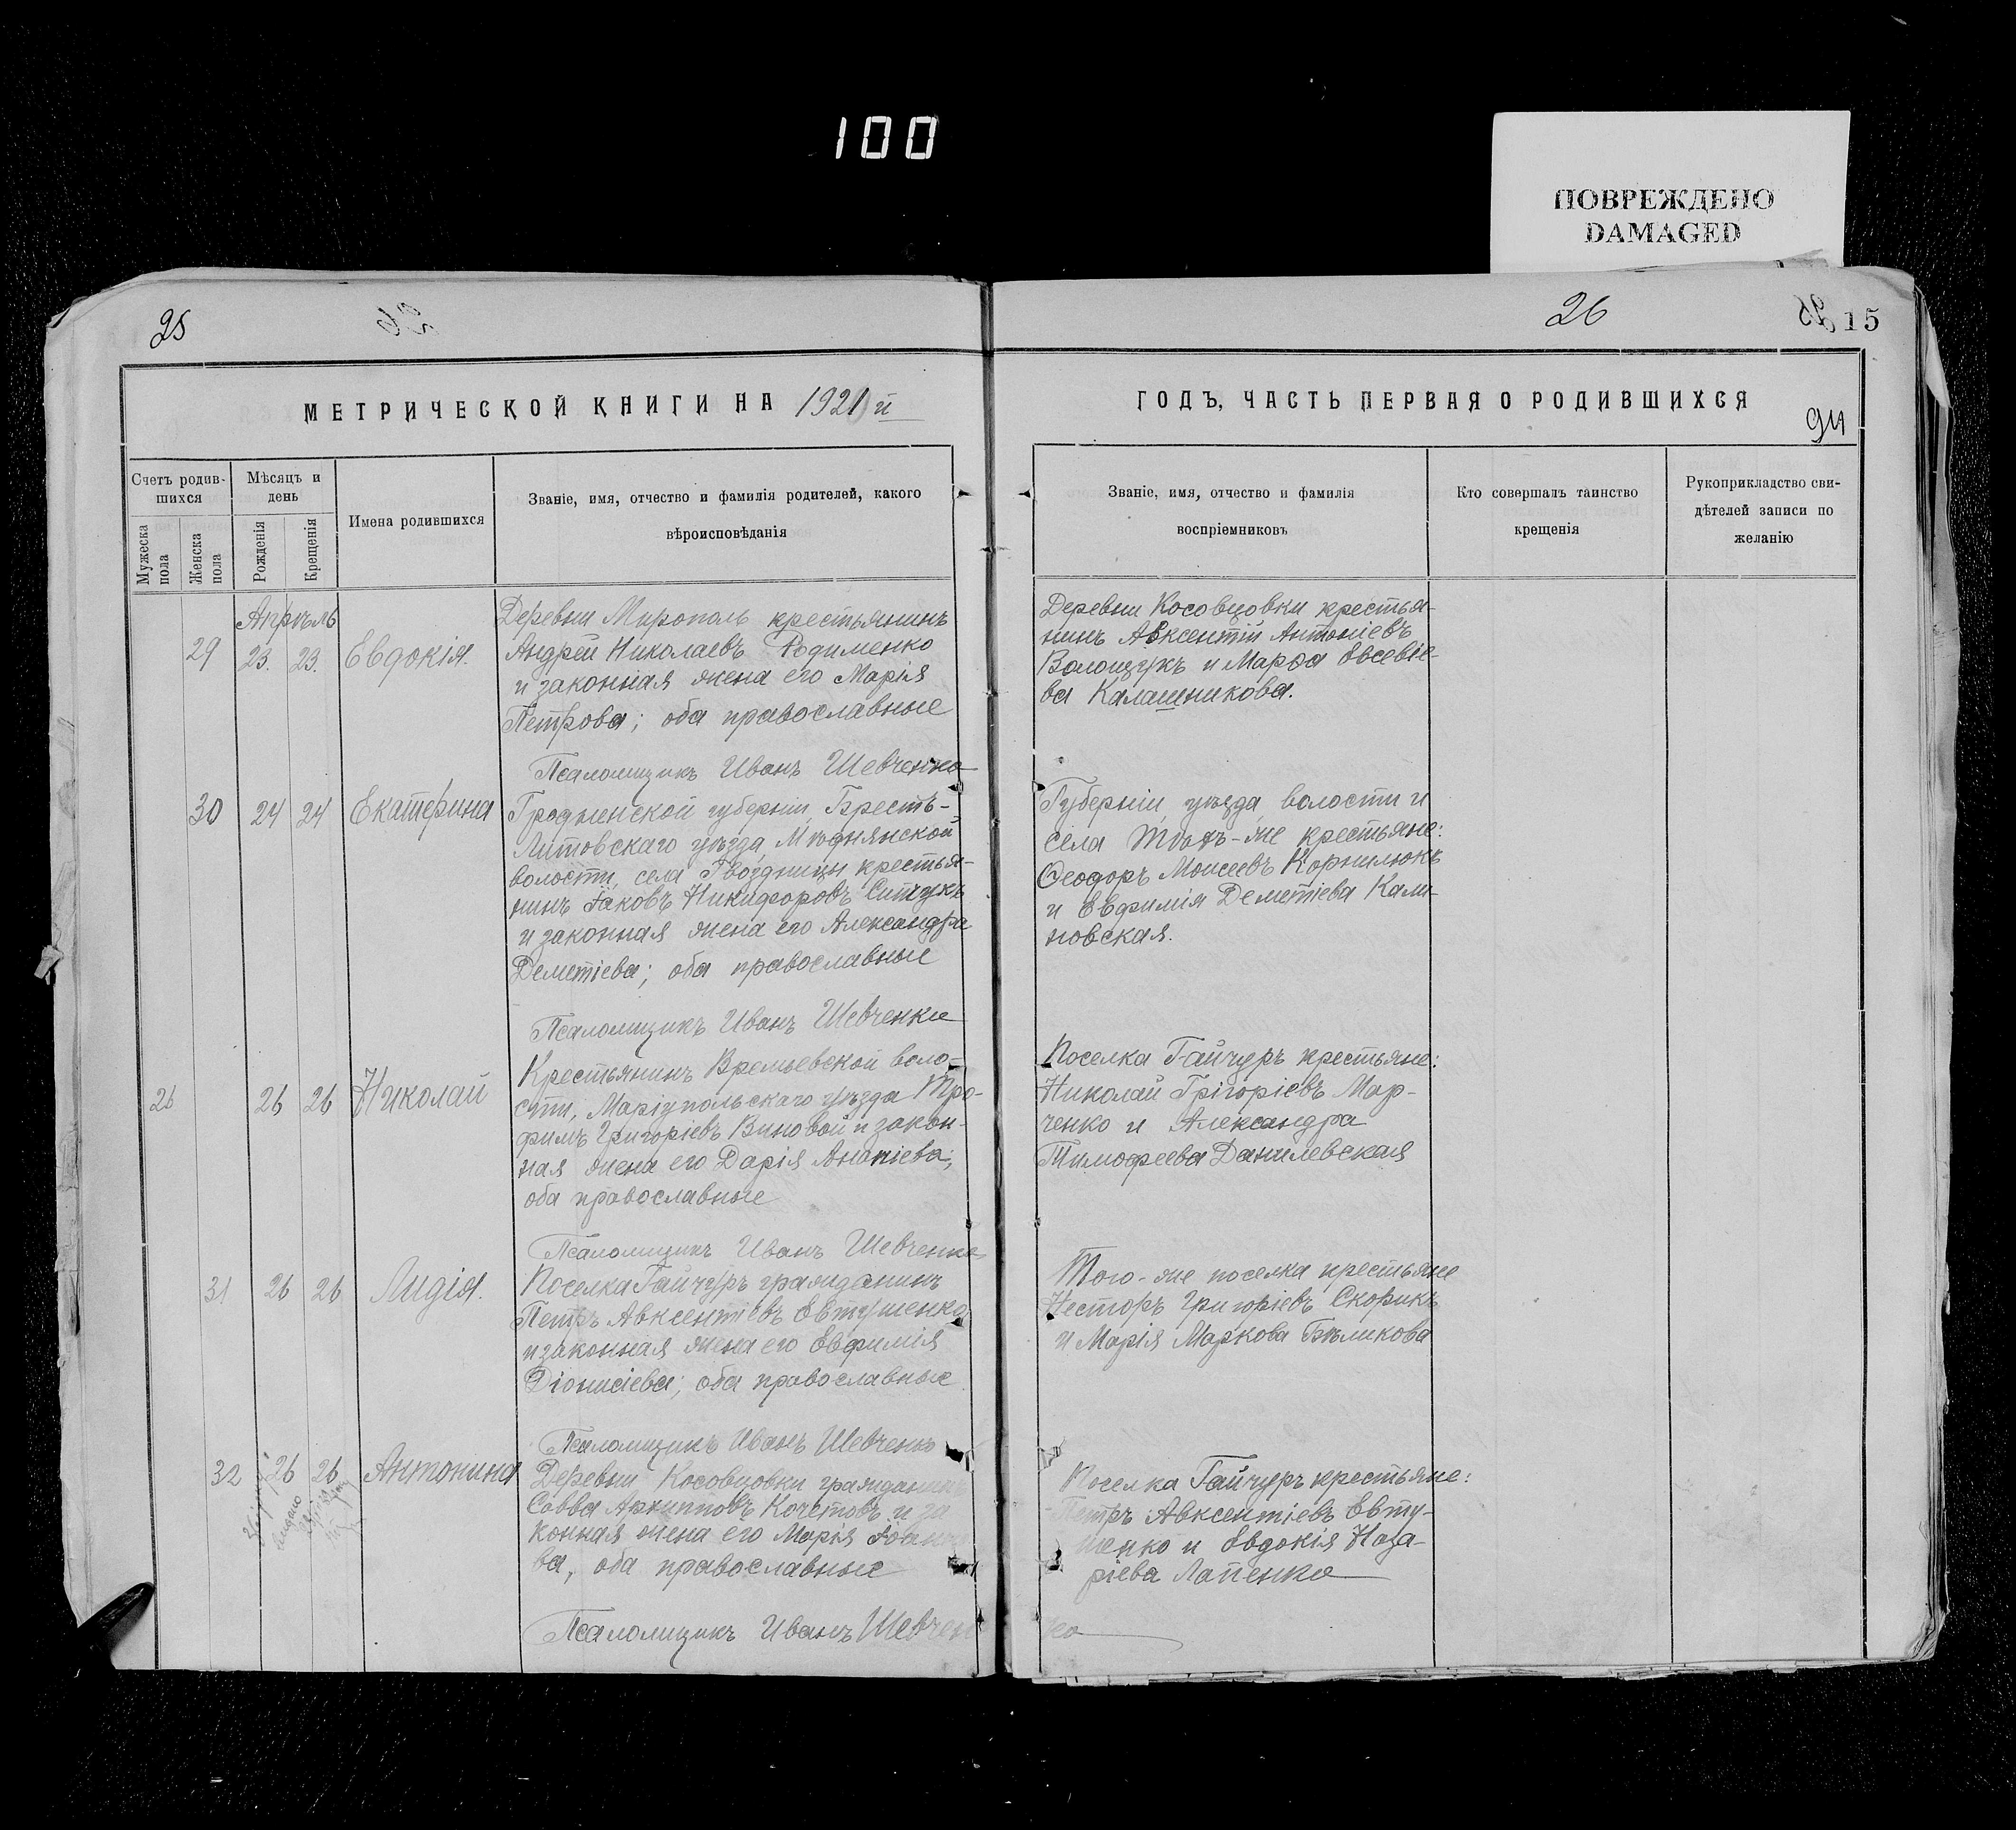 100
ПОВРЕЖДЕНО
DAMAGED
25
26
26
15
МЕТРИЧЕСКОЙ КНИГИ НА 1921 й
ГОДЪ, ЧАСТЬ ПЕРВАЯ О РОДИВШИХСЯ
94
Счетъ родив-
шихся
Мужеска
пола
Женска
пола
Мѣсяцъ и
день
Рожденія
Крещенія
Имена родившихся
Званіе, имя, отчество и фамилія родителей, какого
вѣроисповѣданія
Званіе, имя, отчество и фамилія
воспріемниковъ
Кто совершалъ таинство
крещенія
Рукоприкладство сви-
дѣтелей записи по
желанію
Апрѣль
29 23. 23. Евдокія.
Деревни Мирополь крестьянинъ
Андрей Николаевъ Родименко
и законная жена его Марія
Петрова; оба православные
Псаломщикъ Иванъ Шевченко
Деревни Косовцовки крестья-
нинъ Авксентій Антоніевъ
Волощукъ и Марфа Евсевіе-
ва Калашникова.
30 24 24 Екатерина
Гродненской губерніи, Брестъ-
Литовскаго уѣзда,
волости, села Гвоздницы крестья-
нинъ Іаковъ Никифоровъ
и законная жена его Александра
Деметіева; оба православные
Псаломщикъ Иванъ Шевченко
Губерніи, уѣзда, волости и
села тѣхъ-же крестьяне:
Ѳеодоръ Моисеевъ Корнилюкъ
и Евфимія Деметіева Кали-
новская.
26 26 26 Николай
Крестьянинъ Времьевской воло-
сти, Маріупольскаго уѣзда Тро-
фимъ Григоріевъ Виновой и закон-
ная жена его Дарія Ананіева;
оба православные
Псаломщикъ Иванъ Шевченко
Поселка Гайчуръ крестьяне:
Николай Грігоріевъ Мар-
ченко и Александра
Тимофеева Данилевская
31 26 26 Лидія.
Поселка Гайчуръ гражданинъ
Петръ Авксентіевъ Евтушенко
и законная жена его Евфимія
Діонисіева; оба православные
Псаломщикъ Иванъ Шевченко
Того-же поселка крестьяне
Несторъ Григоріевъ Скорикъ
и Марія Маркова Бѣликова
32 26 26 Антонина
Деревни Косовцовки гражданин
Савва Архипповъ Кочетовъ и за
конная жена его Марія Іоанно
ва, оба православные
Псаломщикъ Иванъ Шевченко
Поселка Гайчуръ крестьяне:
Петръ Авксентіевъ Евту-
шенко и Евдокія Наза-
ріева Лапенко